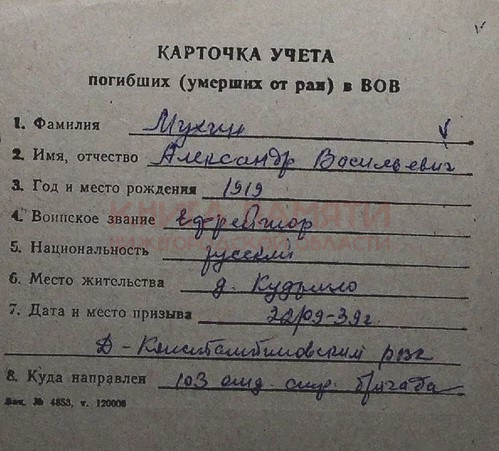 КАРТОЧКА УЧЕТА
погибших (умерших от ран) в ВОВ
1. Фамилия Мухин
2. Имя, отчество Александр Васильевич
3. Год и место рождения 1919
КНИГА ПАМЯТИ
4. Воинское звание ефрейтор
НИЖЕГОРОДСКОЙ ОБЛАСТИ
5. Национальность русский
6. Место жительства д. Кудрино
7. Дата и место призыва 22/09-39г.
Д-Константиновский рвк
8. Куда направлен 103 отд. стр. бригада
Зак. № 4853, т. 120000